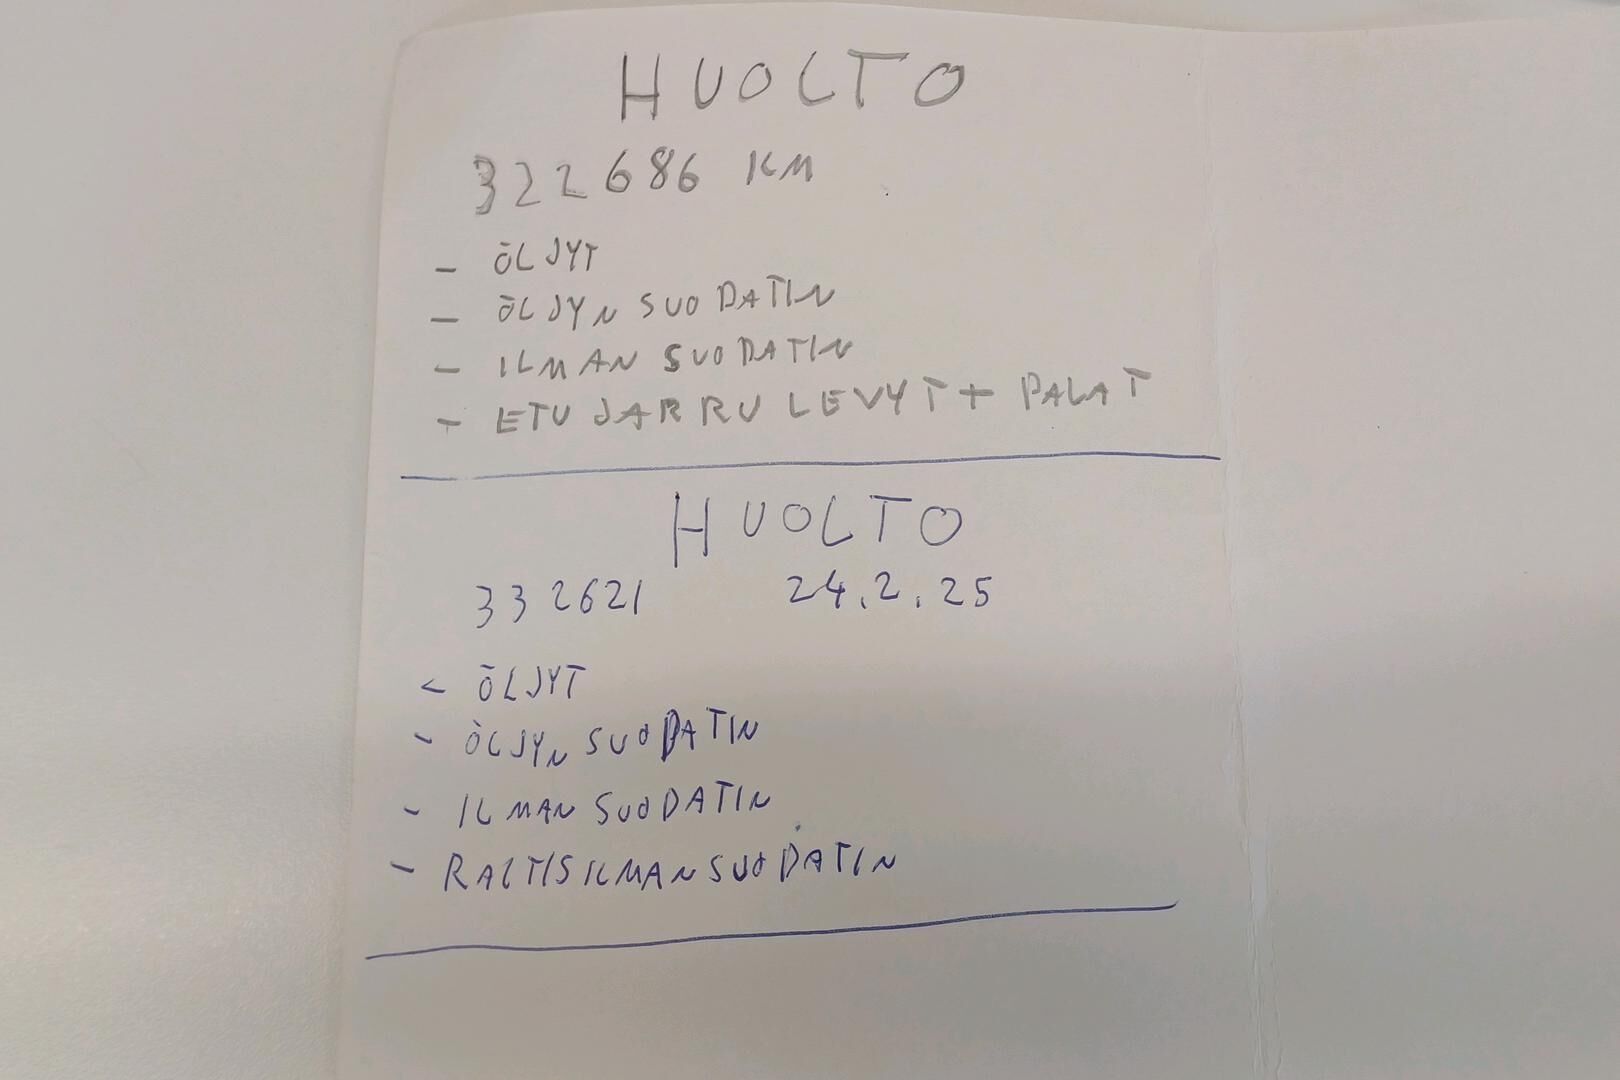 HUOLTO
322686 KM
- ÖLJYT
- ÖLJYN SUODATIN
- ILMAN SUODATIN
- ETU JARRU LEVYT + PALAT
HUOLTO
332621 24.2.25
- ÖLJYT
- ÖLJYN SUODATIN
- ILMAN SUODATIN
- RAITISILMAN SUODATIN